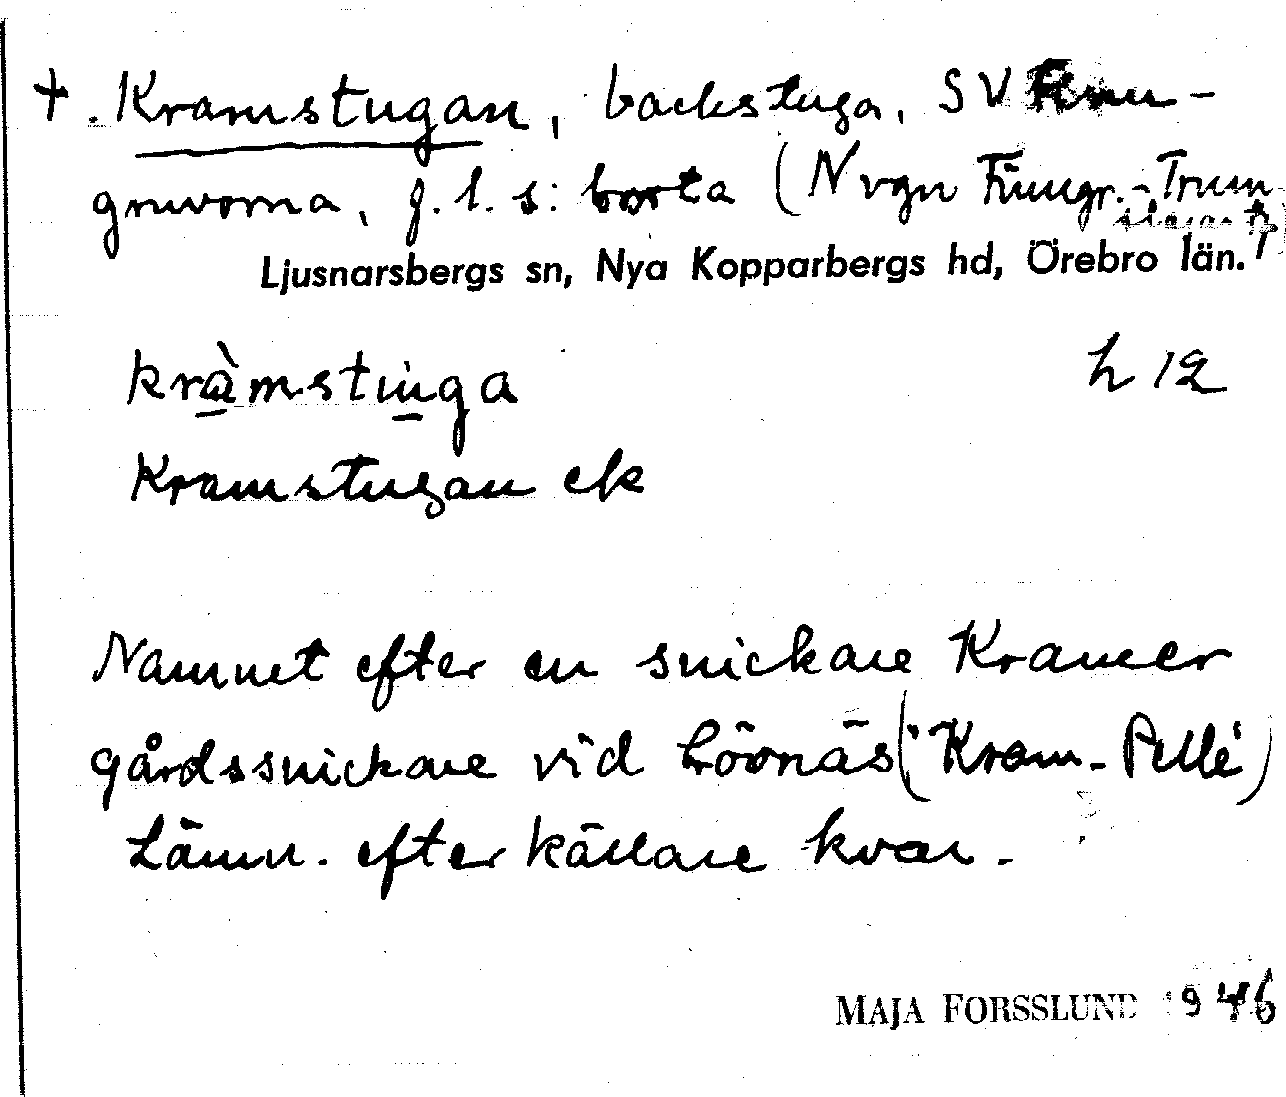 +. Kramstugan, backstuga, SV Finn-
gruvorna, f. l. s: borta (N vgn Finngr.-Trum-
Ljusnarsbergs sn, Nya Kopparbergs hd, Örebro län.
kràmstuga h 12
Kramstugan ek
Namnet efter en snickare Kramer
gårdssnickare vid Lövnäs ("Kram-Pelle")
Lämn. efter källare kvar.
MAJA FORSSLUND 1946